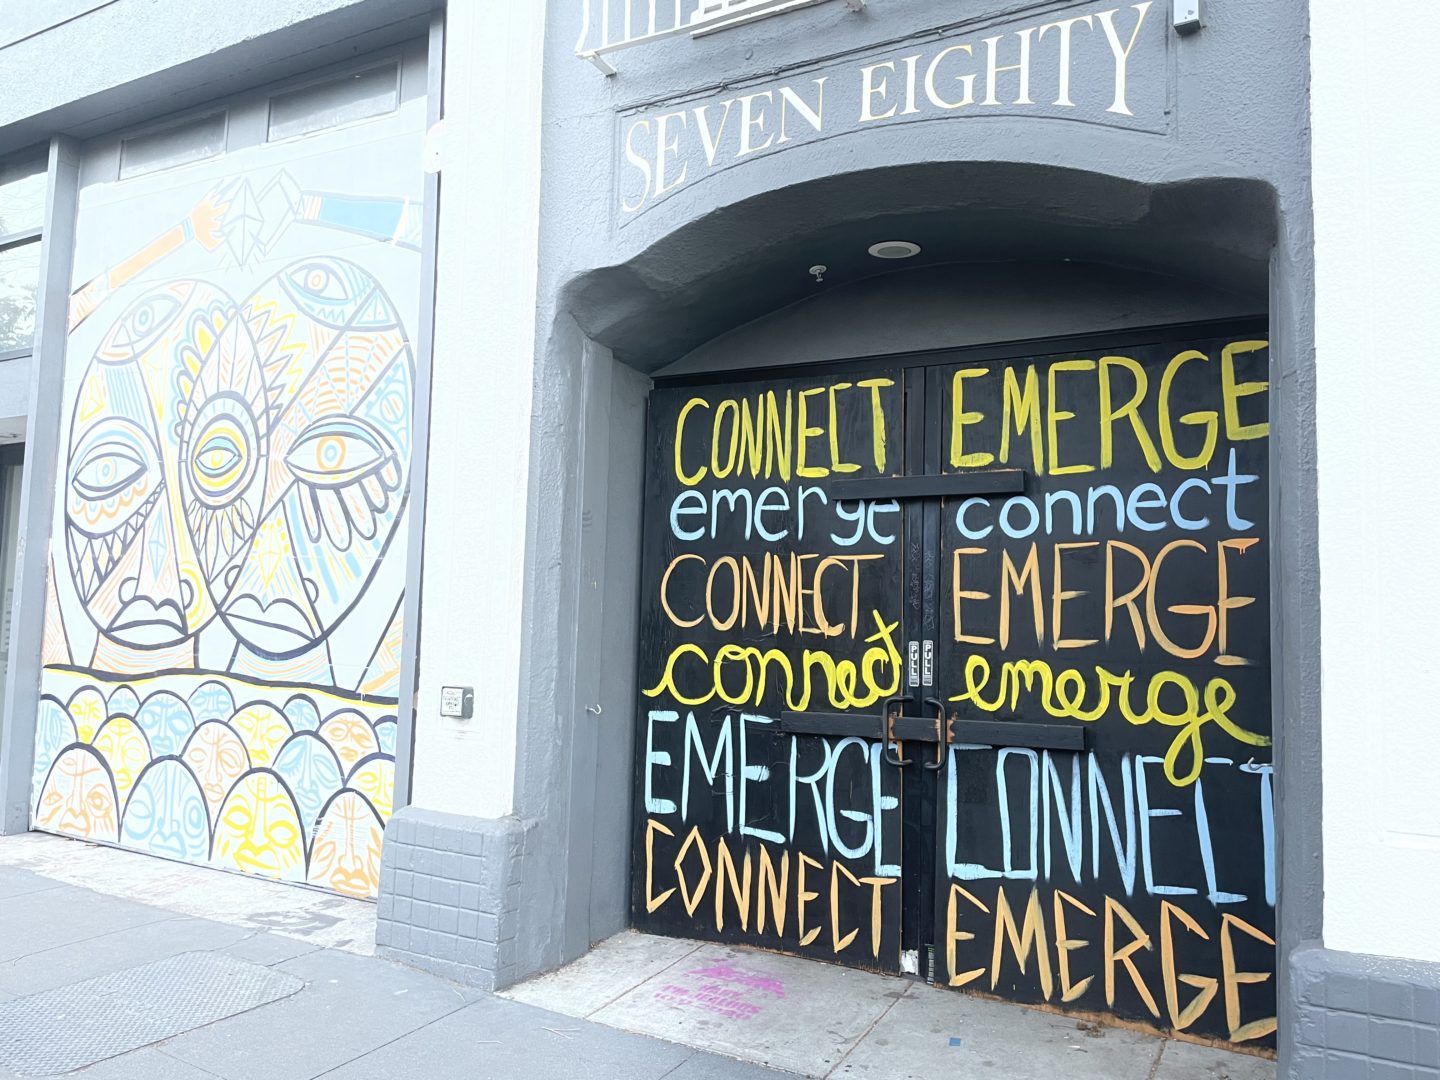 SEVEN EIGHTY
CONNECT EMERGE
emerge connect
CONNECT EMERGE
PULL PULL
connect emerge
EMERGE CONNECT
CONNECT EMERGE